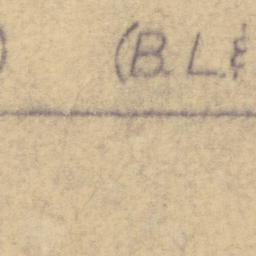 ) (B. L. &